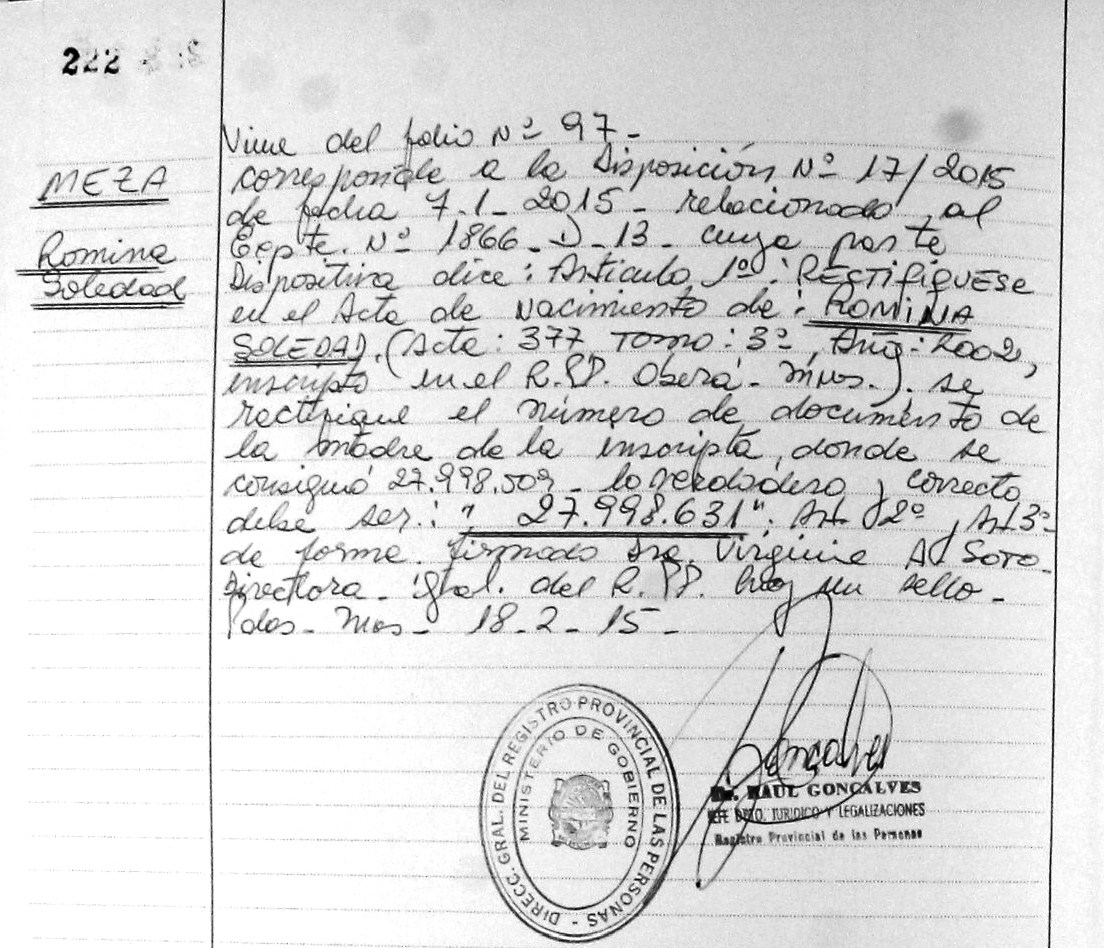 222
MEZA
Romina
Soledad
Viene del folio Nº 97-
corresponde a la Disposición Nº 17/2015
de fecha 7-1-2015- relacionado al
Expte. Nº 1866-D-13- cuya parte
Dispositiva dice: Articulo 1º: RECTIFIQUESE
en el Acta de nacimiento de: ROMINA
SOLEDAD. (Acta: 377, Tomo: 3º, Año: 2002,
inscripto en el R.PP. Oberá- Mnes.). se
rectifique el número de documento de
la madre de la inscripta, donde se
consignó 27.998.509- lo verdadero y correcto
debe ser: " 27.998.631". Art. 2º, Art 3º
de forma. Firmado Dra. Virginia A. Soto-
Directora- Gral. del R.PP. hay un sello-
Pdas- Mnes- 18-2-15-
DIRECC. GRAL. DEL REGISTRO PROVINCIAL DE LAS PERSONAS -
MINISTERIO DE GOBIERNO
Goncalves
Dr. RAUL GONCALVES
JEFE DPTO. JURIDICO Y LEGALIZACIONES
Registro Provincial de las Personas